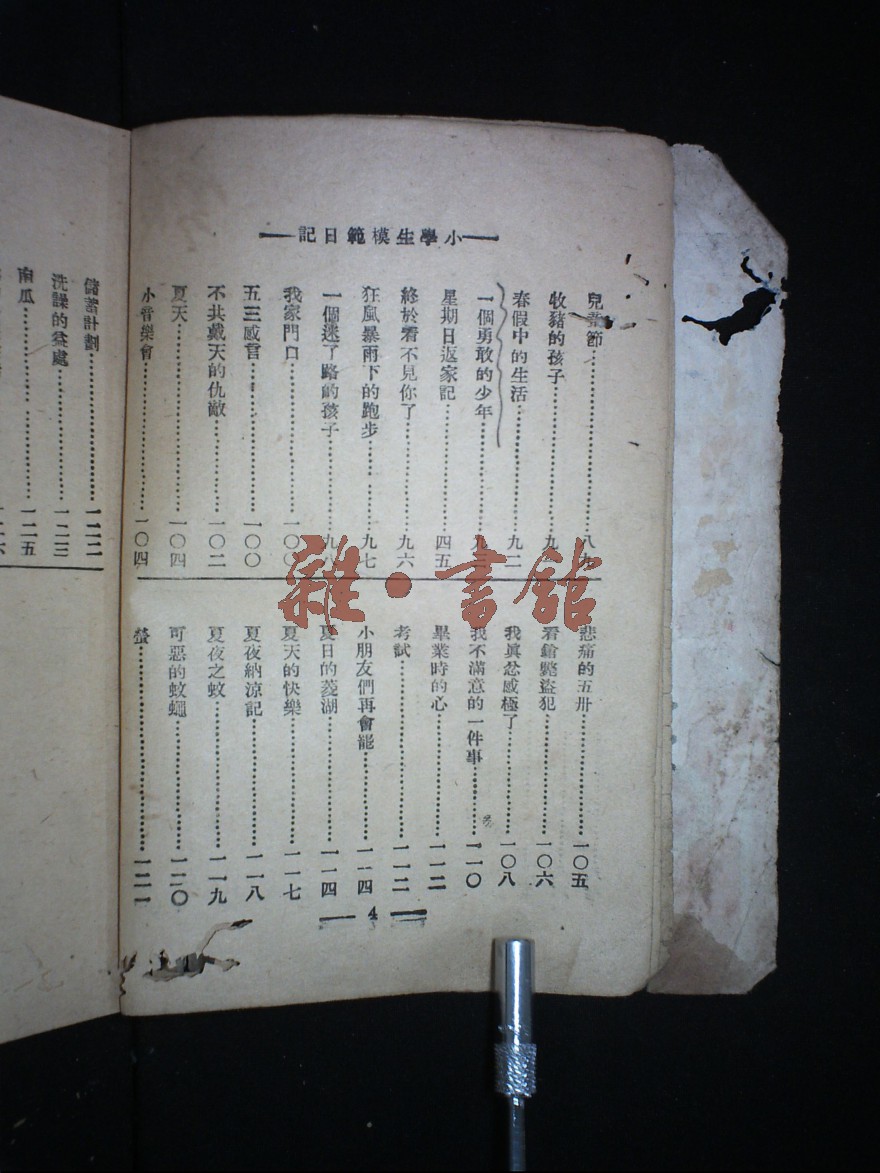 小學生模範日記
兒童節 八九
牧豬的孩子 九
春假中的生活 九二
一個勇敢的少年 九
星期日返家記 四五
終於看不見你了 九六
狂風暴雨下的跑步 九七
一個迷了路的孩子 九
我家門口 一〇〇
五三感言 一〇〇
不共戴天的仇敵 一〇二
夏天 一〇四
小音樂會 一〇四
悲痛的五卅 一〇五
看鎗斃盜犯 一〇六
我真忿感極了 一〇八
我不滿意的一件事 一一〇
畢業時的心 一一二
考試 一一二
小朋友們再會罷 一一四
夏日的菱湖 一一四
夏天的快樂 一一七
夏夜納涼記 一一八
夏夜之蚊 一一九
可惡的蚊蠅 一二〇
螢 一二一
4
儲蓄計劃 一二二
洗澡的益處 一二三
南瓜 一二五
一二六
雜·書館